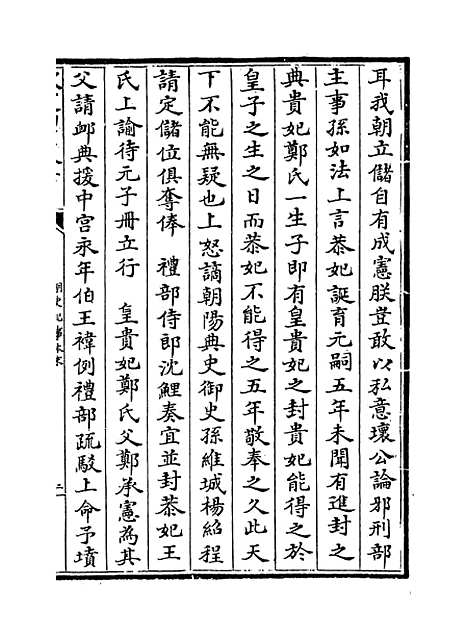 耳我朝立儲自有成憲朕豈敢以私意壞公論邪刑部
主事孫如法上言恭妃誕育元嗣五年未聞有進封之
典貴妃鄭氏一生子即有皇貴妃之封貴妃能得之於
皇子之生之日而恭妃不能得之五年敬奉之久此天
下不能無疑也上怒謫朝陽典史御史孫維城楊紹程
請定儲位俱奪俸　禮部侍郎沈鯉奏宜並封恭妃王
氏上諭待元子冊立行　皇貴妃鄭氏父鄭承憲為其
父請卹典援中宮永年伯王褘例禮部疏駁上命予墳
明史紀事本末
二